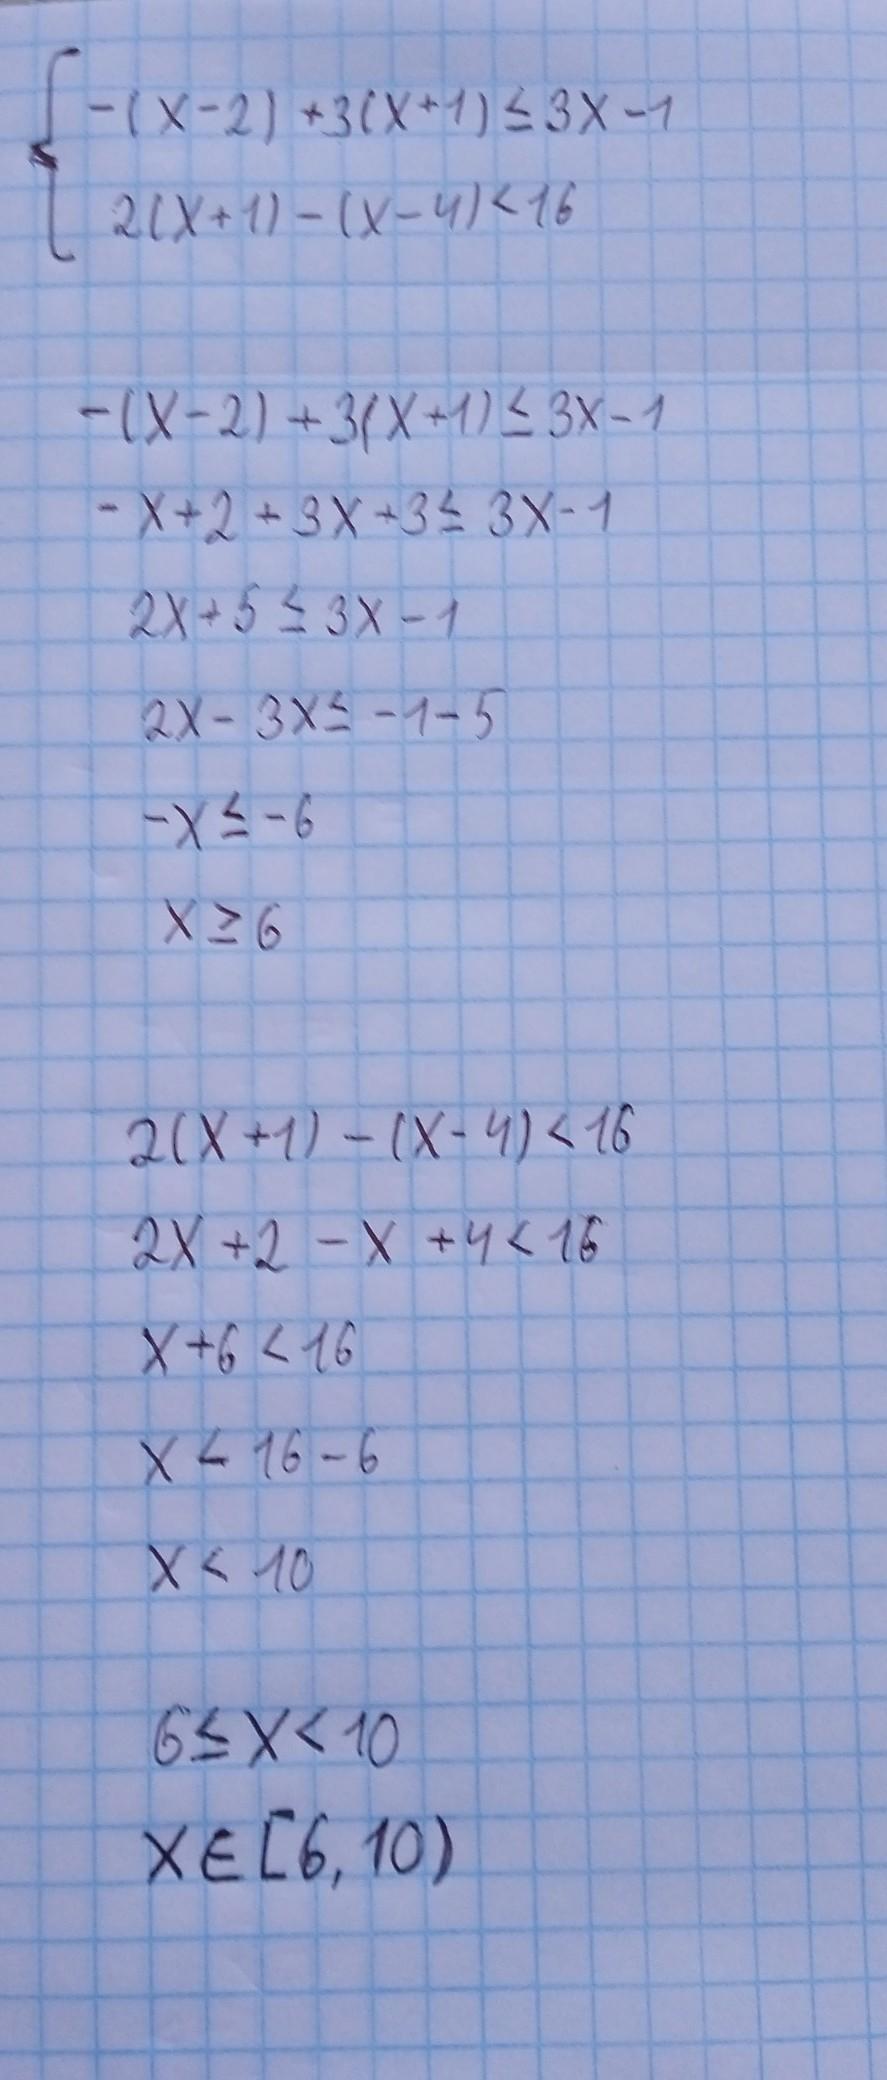 -(x-2)+3(x+1)≤3x-1
2(x+1)-(x-4)<16
-(x-2)+3(x+1)≤3x-1
-x+2+3x+3≤3x-1
2x+5≤3x-1
2x-3x≤-1-5
-x≤-6
x≥6
2(x+1)-(x-4)<16
2x+2-x+4<16
x+6<16
x<16-6
x<10
6≤x<10
x∈[6,10)